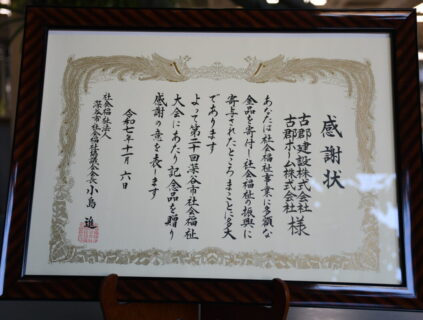 感謝状
古郡建設株式会社
古郡ホーム株式会社
様
あなたは社会福祉事業に多額な
金品を寄付し社会福祉の振興に
寄与されたところまことに多大
であります
よって第二十回深谷市社会福祉
大会にあたり記念品を贈り
感謝の意を表します
令和七年十一月六日
社会福祉法人
深谷市社会福祉協議会会長 小島 進